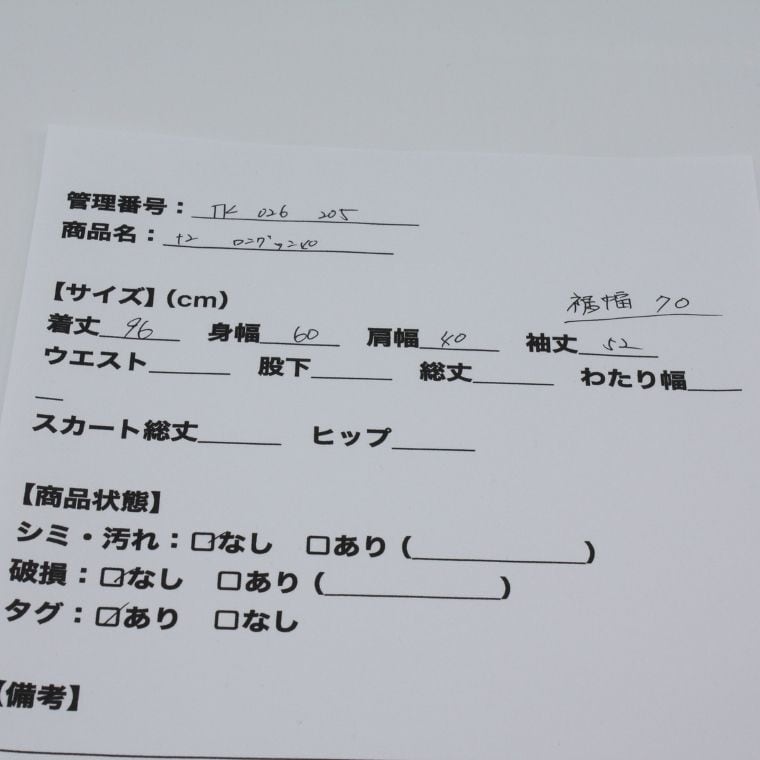 管理番号： 026 205
商品名：
【サイズ】(cm) 裾幅 70
着丈 96 身幅 60 肩幅 40 袖丈 52
ウエスト______ 股下______ 総丈______ わたり幅____
__
スカート総丈______ ヒップ______
【商品状態】
シミ・汚れ：☑なし □あり (____________)
破損：☑なし □あり (____________)
タグ：☑あり □なし
【備考】